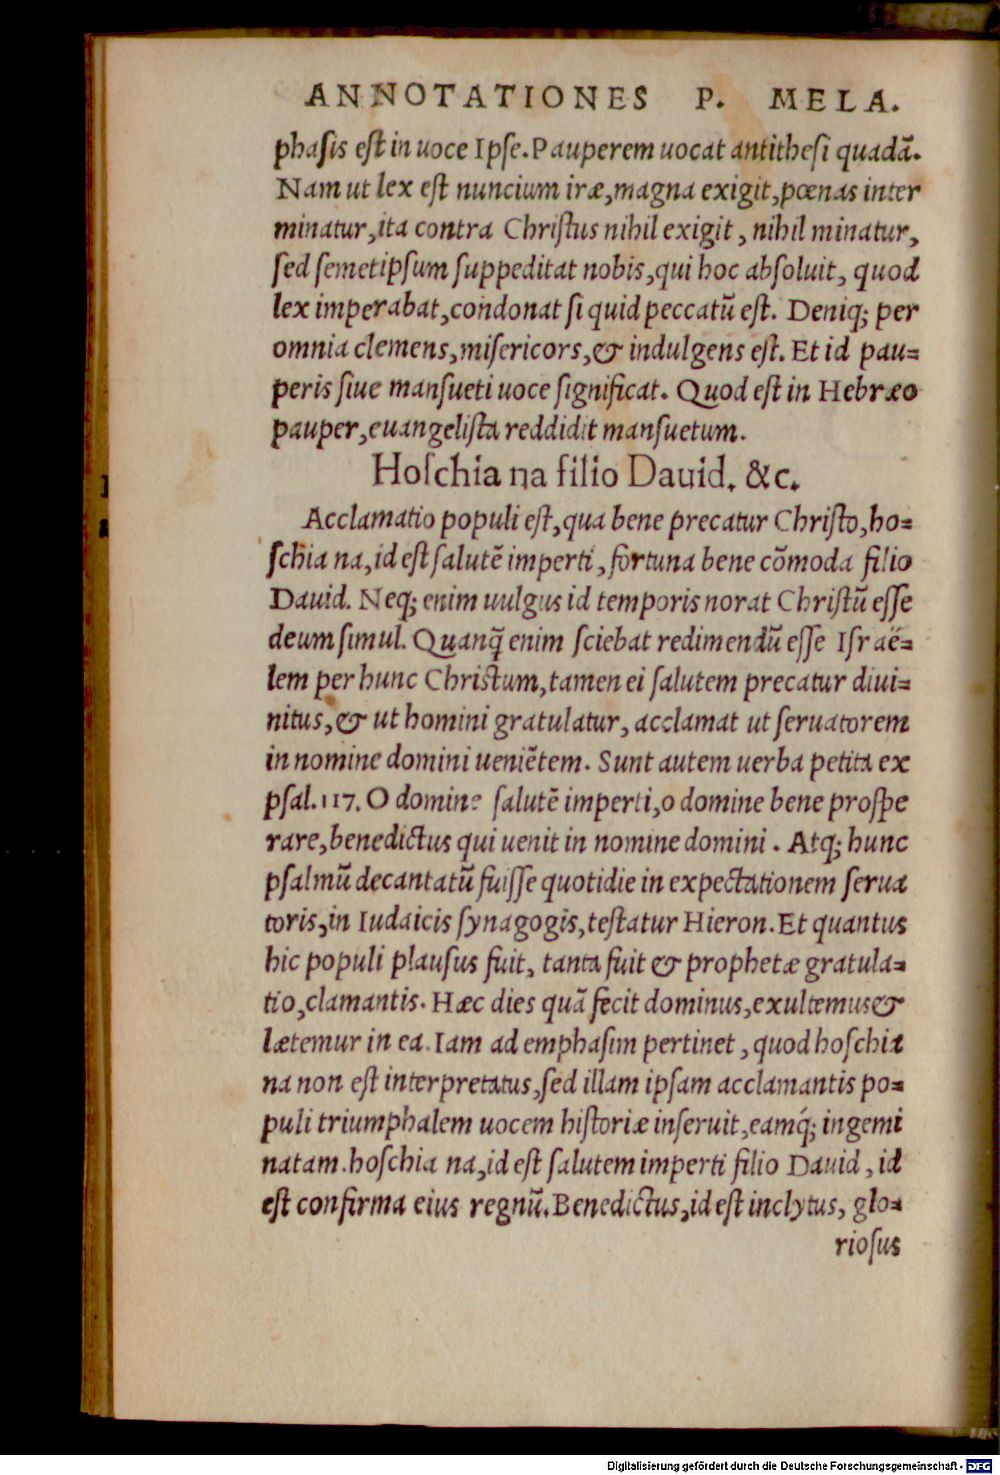 ANNOTATIONES P. MELA.
phaſis eſt in uoce Ipſe. Pauperem uocat antitheſi quadã.
Nam ut lex eſt nuncium iræ, magna exigit, pœnas inter
minatur, ita contra Chriſtus nihil exigit, nihil minatur,
ſed ſemetipſum ſuppeditat nobis, qui hoc abſoluit, quod
lex imperabat, condonat ſi quid peccatũ eſt. Deniq; per
omnia clemens, miſericors, & indulgens eſt. Et id pau=
peris ſiue manſueti uoce ſignificat. Quod eſt in Hebræo
pauper, euangeliſta reddidit manſuetum.
Hoſchia na filio Dauid. &c.
Acclamatio populi eſt, qua bene precatur Chriſto, ho=
ſchia na, id eſt ſalutẽ imperti, fortuna bene cõmoda filio
Dauid. Neq; enim uulgus id temporis norat Chriſtũ eſſe
deum ſimul. Quanq̃ enim ſciebat redimendũ eſſe Iſraë=
lem per hunc Chriſtum, tamen ei ſalutem precatur diui=
nitus, & ut homini gratulatur, acclamat ut ſeruatorem
in nomine domini ueniẽtem. Sunt autem uerba petita ex
pſal. 117. O domine ſalutẽ imperti, o domine bene proſpe
rare, benedictus qui uenit in nomine domini. Atq; hunc
pſalmũ decantatũ fuiſſe quotidie in expectationem ſerua
toris, in Iudaicis ſynagogis, teſtatur Hieron. Et quantus
hic populi plauſus fuit, tanta fuit & prophetæ gratula=
tio, clamantis. Hæc dies quã fecit dominus, exultemus &
lætemur in ea. Iam ad emphaſim pertinet, quod hoſchia
na non eſt interpretatus, ſed illam ipſam acclamantis po=
puli triumphalem uocem hiſtoriæ inſeruit, eamq́; ingemi
natam. hoſchia na, id eſt ſalutem imperti filio Dauid, id
eſt confirma eius regnũ. Benedictus, id eſt inclytus, glo=
rioſus
Digitalisierung gefördert durch die Deutsche Forschungsgemeinschaft - DFG